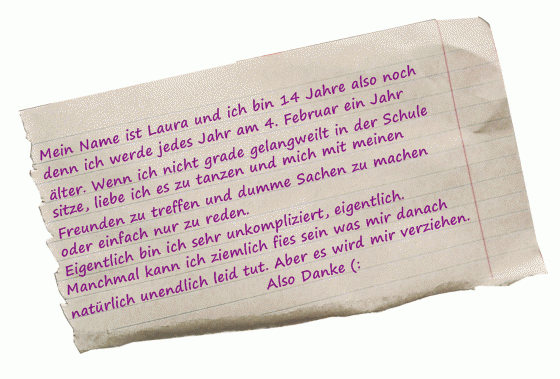 Mein Name ist Laura und ich bin 14 Jahre also noch
denn ich werde jedes Jahr am 4. Februar ein Jahr
älter. Wenn ich nicht grade gelangweilt in der Schule
sitze, liebe ich es zu tanzen und mich mit meinen
Freunden zu treffen und dumme Sachen zu machen
oder einfach nur zu reden.
Eigentlich bin ich sehr unkompliziert, eigentlich.
Manchmal kann ich ziemlich fies sein was mir danach
natürlich unendlich leid tut. Aber es wird mir verziehen.
Also Danke (: